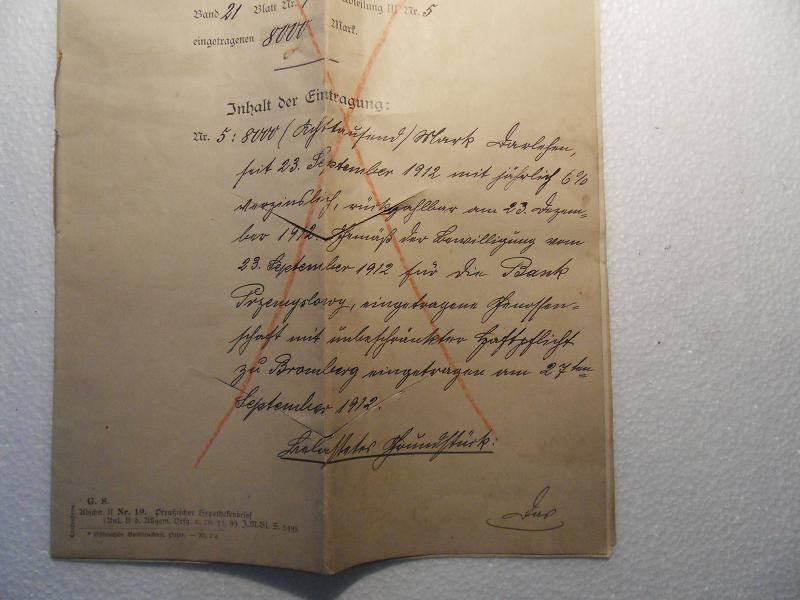 Band 21 Blatt Nr. 1 Abteilung III Nr. 5
eingetragenen 8000 Mark.
Inhalt der Eintragung:
Nr. 5: 8000 (Achttausend) Mark Darlehen,
seit 23. September 1912 mit jährlich 6%
verzinslich, rückzahlbar am 23. Dezem-
ber 1912. Gemäß der Bewilligung vom
23. September 1912 für die Bank
Przemysłowy, eingetragene Genossen-
schaft mit unbeschränkter Haftpflicht
zu Bromberg eingetragen am 27ten
September 1912.
Belastetes Grundstück:
Das
G. S.
Abschn. II Nr. 19. Preußischer Hypothekenbrief